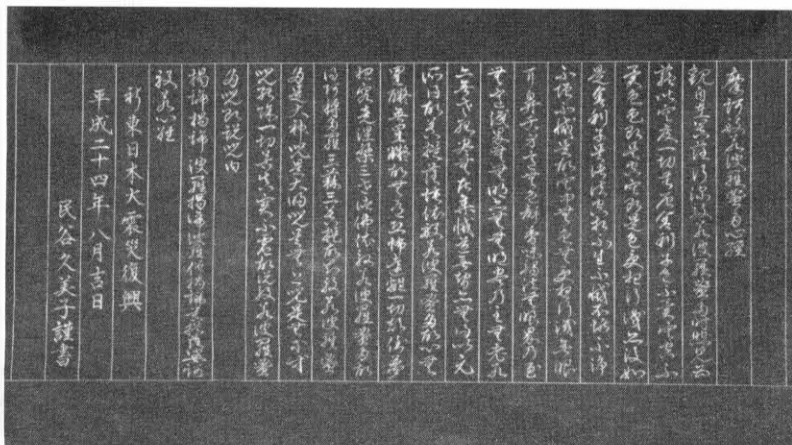 摩訶般若波羅蜜多心経
観自在菩薩行深般若波羅蜜多時照見五
蘊皆空度一切苦厄舎利子色不異空空不
異色色即是空空即是色受想行識亦復如
是舎利子是諸法空相不生不滅不垢不浄
不増不減是故空中無色無受想行識無眼
耳鼻舌身意無色声香味触法無眼界乃至
無意識界無無明亦無無明尽乃至無老死
亦無老死尽無苦集滅道無智亦無得以无
所得故菩提薩埵依般若波羅蜜多故心無
罣礙無罣礙故無有恐怖遠離一切顛倒夢
想究竟涅槃三世諸仏依般若波羅蜜多故
得阿耨多羅三藐三菩提故知般若波羅蜜
多是大神呪是大明呪是無上呪是無等等
呪能除一切苦真実不虚故説般若波羅蜜
多呪即説呪曰
掲諦掲諦波羅掲諦波羅僧掲諦菩提薩婆訶
般若心経
祈東日本大震災復興
平成二十四年八月吉日
民谷久美子謹書